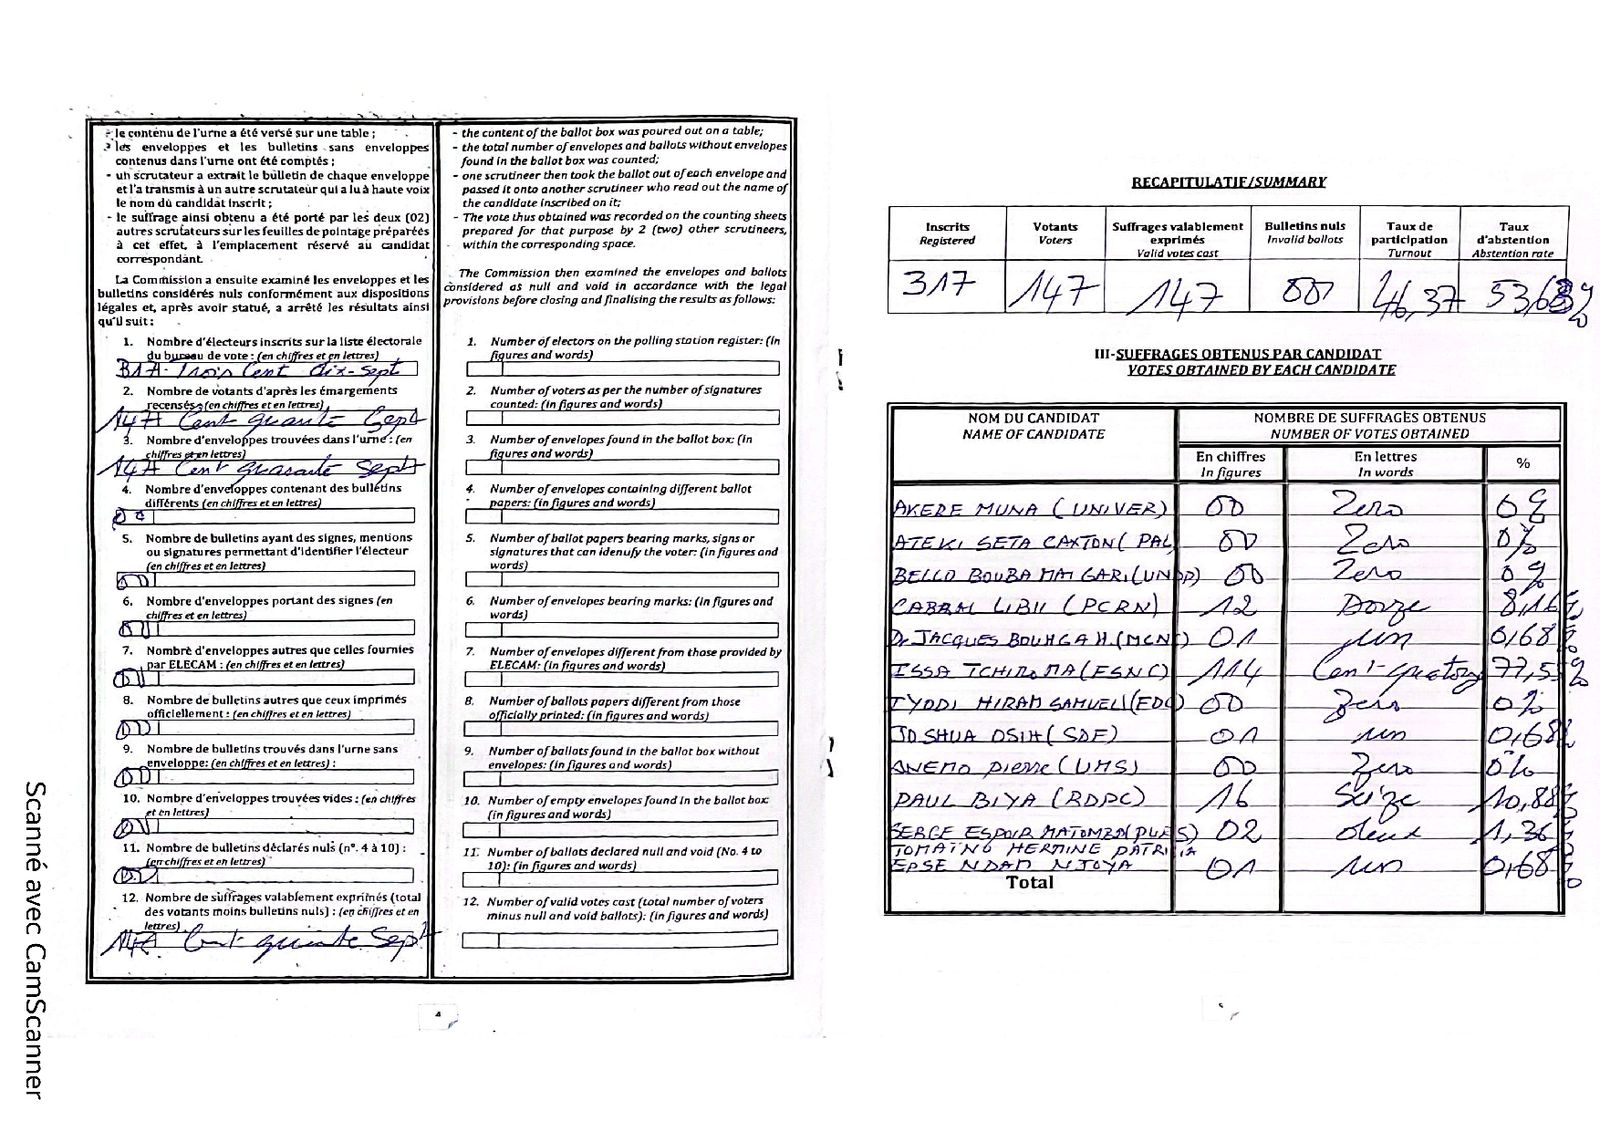 - le contenu de l'urne a été versé sur une table ;
- les enveloppes et les bulletins sans enveloppes
contenus dans l'urne ont été comptés ;
- un scrutateur a extrait le bulletin de chaque enveloppe
et l'a transmis à un autre scrutateur qui a lu à haute voix
le nom du candidat inscrit ;
- le suffrage ainsi obtenu a été porté par les deux (02)
autres scrutateurs sur les feuilles de pointage préparées
à cet effet, à l'emplacement réservé au candidat
correspondant.
La Commission a ensuite examiné les enveloppes et les
bulletins considérés nuls conformément aux dispositions
légales et, après avoir statué, a arrêté les résultats ainsi
qu'il suit :
1. Nombre d'électeurs inscrits sur la liste électorale
du bureau de vote : (en chiffres et en lettres)
317 Trois Cent dix-sept
2. Nombre de votants d'après les émargements
recensés : (en chiffres et en lettres)
147 Cent quarante Sept
3. Nombre d'enveloppes trouvées dans l'urne : (en
chiffres et en lettres)
147 Cent quarante Sept
4. Nombre d'enveloppes contenant des bulletins
différents (en chiffres et en lettres)
00
5. Nombre de bulletins ayant des signes, mentions
ou signatures permettant d'identifier l'électeur
(en chiffres et en lettres)
00
6. Nombre d'enveloppes portant des signes (en
chiffres et en lettres)
00
7. Nombre d'enveloppes autres que celles fournies
par ELECAM : (en chiffres et en lettres)
00
8. Nombre de bulletins autres que ceux imprimés
officiellement : (en chiffres et en lettres)
00
9. Nombre de bulletins trouvés dans l'urne sans
enveloppe: (en chiffres et en lettres) :
00
10. Nombre d'enveloppes trouvées vides : (en chiffres
et en lettres)
00
11. Nombre de bulletins déclarés nuls (n°. 4 à 10) :
(en chiffres et en lettres)
00
12. Nombre de suffrages valablement exprimés (total
des votants moins bulletins nuls) : (en chiffres et en
lettres)
147 Cent quarante Sept
- the content of the ballot box was poured out on a table;
- the total number of envelopes and ballots without envelopes
found in the ballot box was counted;
- one scrutineer then took the ballot out of each envelope and
passed it onto another scrutineer who read out the name of
the candidate inscribed on it;
- The vote thus obtained was recorded on the counting sheets
prepared for that purpose by 2 (two) other scrutineers,
within the corresponding space.
The Commission then examined the envelopes and ballots
considered as null and void in accordance with the legal
provisions before closing and finalising the results as follows:
1. Number of electors on the polling station register: (in
figures and words)
2. Number of voters as per the number of signatures
counted: (in figures and words)
3. Number of envelopes found in the ballot box: (in
figures and words)
4. Number of envelopes containing different ballot
papers: (in figures and words)
5. Number of ballot papers bearing marks, signs or
signatures that can idenufy the voter: (in figures and
words)
6. Number of envelopes bearing marks: (in figures and
words)
7. Number of envelopes different from those provided by
ELECAM: (in figures and words)
8. Number of ballots papers different from those
officially printed: (in figures and words)
9. Number of ballots found in the ballot box without
envelopes: (in figures and words)
10. Number of empty envelopes found in the ballot box
(in figures and words)
11. Number of ballots declared null and void (No. 4 to
10): (in figures and words)
12. Number of valid votes cast (total number of voters
minus null and void ballots): (in figures and words)
4
RECAPITULATIF/SUMMARY
Inscrits Votants Suffrages valablement Bulletins nuls Taux de Taux
Registered Voters exprimés Invalid ballots participation d'abstention
Valid votes cast Turnout Abstention rate
317 147 147 00 46,37 53,63%
III-SUFFRAGES OBTENUS PAR CANDIDAT
VOTES OBTAINED BY EACH CANDIDATE
NOM DU CANDIDAT NOMBRE DE SUFFRAGES OBTENUS
NAME OF CANDIDATE NUMBER OF VOTES OBTAINED
En chiffres En lettres %
In figures In words
AKERE MUNA (UNIVER) 00 Zero 0%
ATEKI SETA CAXTON (PAL 00 Zero 0%
BELLO BOUBA MAIGARI (UNDP) 00 Zero 0%
CABRAL LIBII (PCRN) 12 Douze 8,16%
Dr JACQUES BOUHGA H. (MCNC) 01 un 0,68%
ISSA TCHIROMA (FSNC) 114 Cent-quatorze 77,55%
IYODI HIRAM SAMUEL (FDC) 00 Zero 0%
JOSHUA OSIH (SDF) 01 un 0,68%
ANEMO Pierre (UMS) 00 Zero 0%
PAUL BIYA (RDPC) 16 Seize 10,88%
SERGE ESPOIR MATOMBA (PURS) 02 deux 1,36%
TOMAINO HERMINE PATRICIA
EPSE NDAM NJOYA 01 un 0,68%
Total
Scanné avec CamScanner